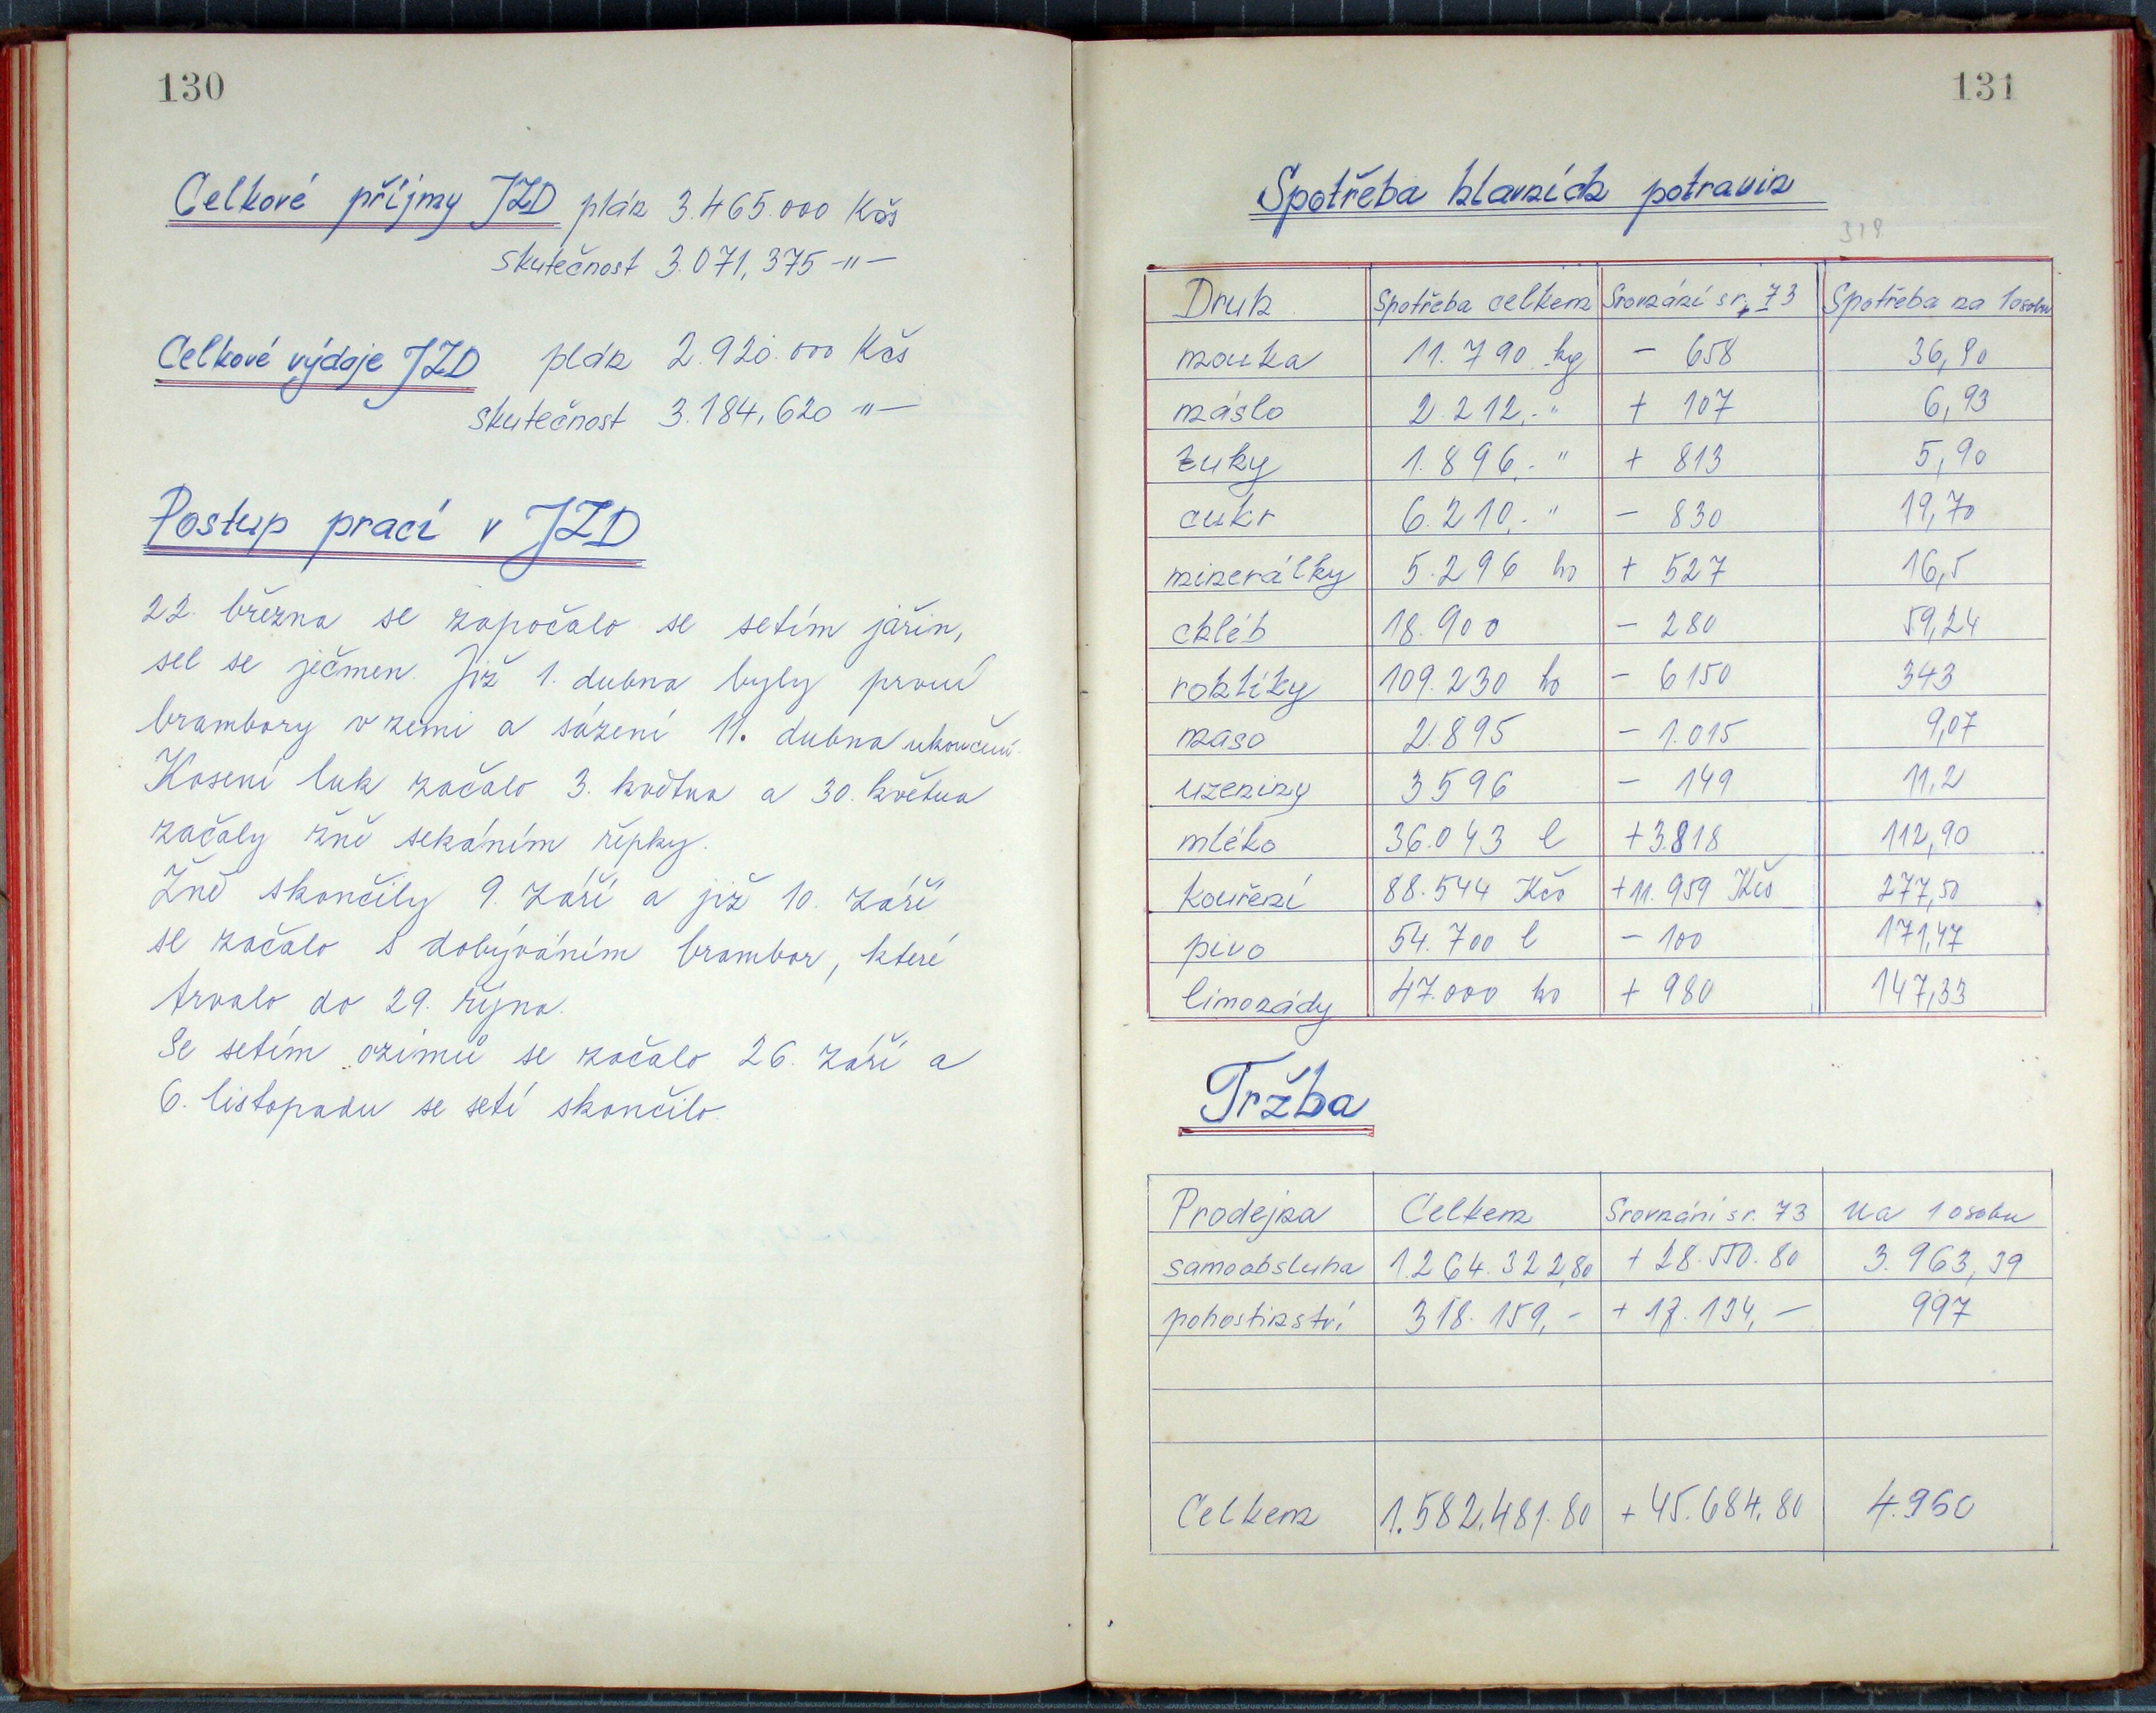 130
Celkové příjmy JZD plán 3.465.000 Kčs
skutečnost 3.071,375 -"-
Celkové výdaje JZD plán 2.920.000 Kčs
skutečnost 3.184,620 -"-
Postup prací v JZD
22. března se započalo se setím jařin,
sel se ječmen. Již 1. dubna byly první
brambory v zemi a sázení 11. dubna ukončení.
Kosení luk začalo 3. května a 30. května
začaly žně sekáním řepky.
Žně skončily 9. září a již 10. září
se začalo s dobýváním brambor, které
trvalo do 29. října.
Se setím ozimů se začalo 26. září a
6. listopadu se setí skončilo.
131
Spotřeba hlavních potravin
318
Druh Spotřeba celkem Srovnání s r. 73 Spotřeba na 1osobu
mouka 11.790 kg - 658 36,90
máslo 2.212,- " + 107 6,93
tuky 1.896,- " + 813 5,90
cukr 6.210,- " - 830 19,70
minerálky 5.296 ks + 527 16,5
chléb 18.900 - 280 59,24
rohlíky 109.230 ks - 6150 343
maso 2.895 - 1.015 9,07
uzeniny 3596 - 149 11,2
mléko 36.043 l +3.818 112,90
kouření 88.544 Kčs +11.959 Kčs 277,50
pivo 54.700 l - 100 171,47
limonády 47.000 ks + 980 147,33
Tržba
Prodejna Celkem Srovnání s r. 73 Na 1 osobu
samoobsluha 1.264.322,80 + 28.550.80 3.963,39
pohostinství 318.159,- + 17.134,- 997
Celkem 1.582.481.80 + 45.684.80 4.960